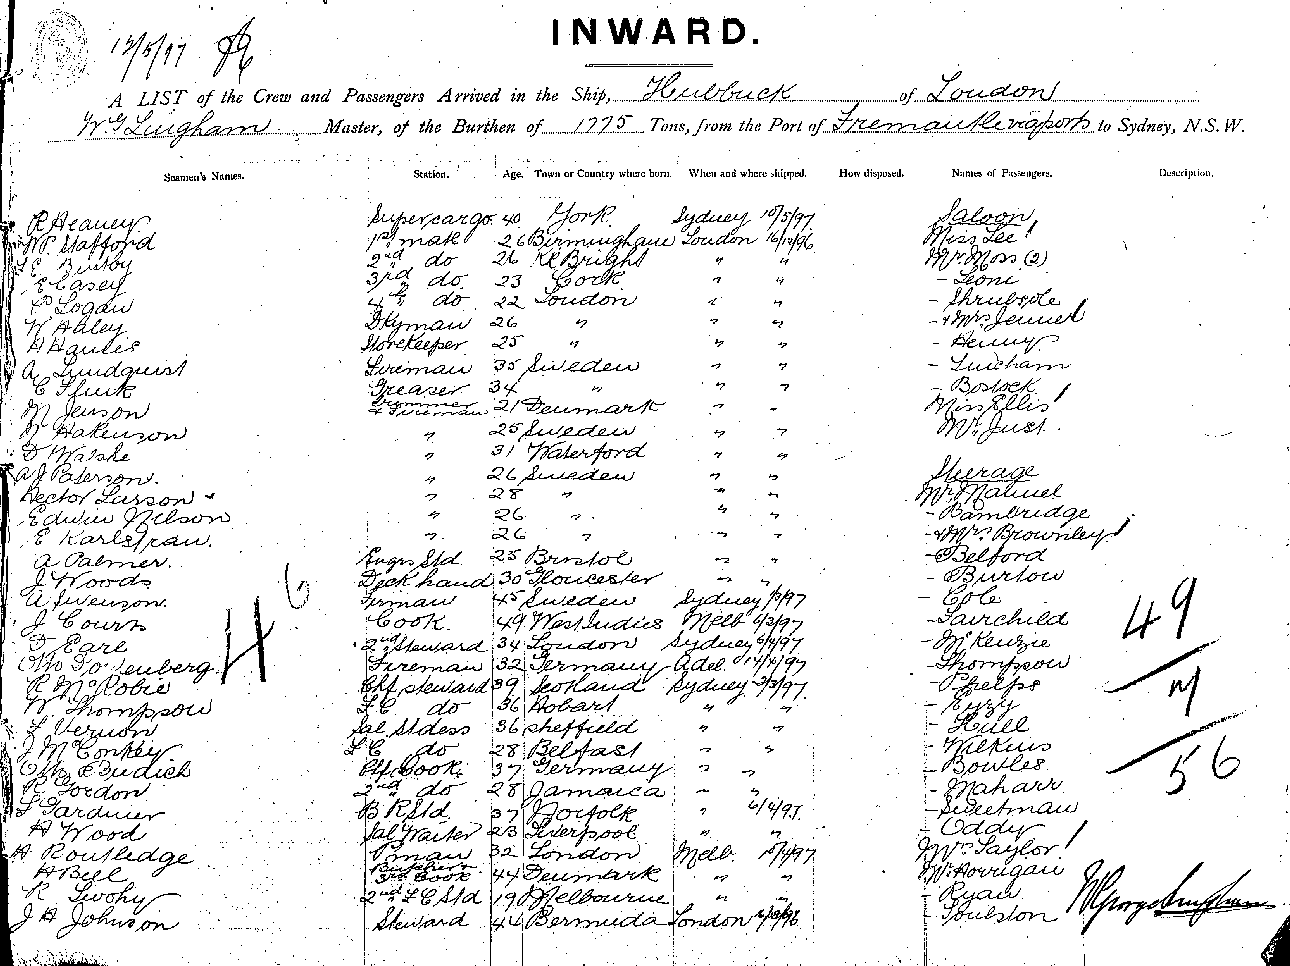 INWARD.
13/5/97
A LIST of the Crew and Passengers Arrived in the Ship, Hubbuck of London
W. G. Lingham Master, of the Burthen of 1775 Tons, from the Port of Fremantle via ports to Sydney, N.S.W.
Seamen's Names. Station. Age. Town or Country where born. When and where shipped. How disposed. Names of Passengers. Description.
R Heaney Supercargo 40 York Sydney 10/5/97 Saloon
W P. Stafford 1st mate 26 Birmingham London 16/12/96 Miss Lee
E Busby 2nd do 26 " " Mr Moss (2)
E Casey 3rd do. 23 Cork " " - Leoni
P Logan 4th do 22 London " " - Shrubsole
W Haley 26 " " " - & Mrs Jennel
H Hawles Storekeeper 25 " " " - Henny
A Lundquist Fireman 35 Sweden " " - Lincham
C Greaser 34 " " " - Bostock
M Jenson Trimmer & Fireman 21 Denmark " " Miss Ellis
N Hakenson " 25 Sweden " " Mr. Just.
D Walshe " 31 Waterford " "
A J Paterson. " 26 Sweden " " Steerage
Hector Larson " 28 " " " Mr. Manuel
Edwin Nilson " 26 " " " - Bambridge
E Karlstrau. " 26 " " " - & Mrs. Brownley
A Palmer. Engrs Std 25 Bristol " " - Belford
J Woods Deck hand 30 Gloucester " " - Burton
A Svenson. Firman 45 Sweden Sydney - Cole
J Courts Cook. 49 West Indies Melb - Fairchild
D Earl 2nd Steward 34 London Sydney 6/4/97 - McKenzie
Otto Fireman 32 Germany Adel. 14/4/97 - Thompson
R McRobie Chf steward 39 Scotland Sydney - Phelps
W Thompson F C do 36 Hobart " "
L Vernon Sal Stdess 36 Sheffield " " - Hull
J McConkey F C do 28 Belfast " " - Wilkins
Otto E Budich Chf Cook 37 Germany " " - Bowles
R Gordon 2nd do 28 Jamaica " " - Maharr
L Gardiner B R Std. 37 Norfolk " 6/4/97. - Sweetman
H Wood Sal Waiter 23 Liverpool " " - Oddy
H Routledge Pman 32 London Melb. 15/4/97 Mrs Taylor
H Bell 3rd Cook 44 Denmark " " Mr. Horrigan
R Twohy 2nd F C Std 19 Melbourne " " - Ryan
J H Johnson Steward 44 Bermuda London - Foulston
46
49
7
56